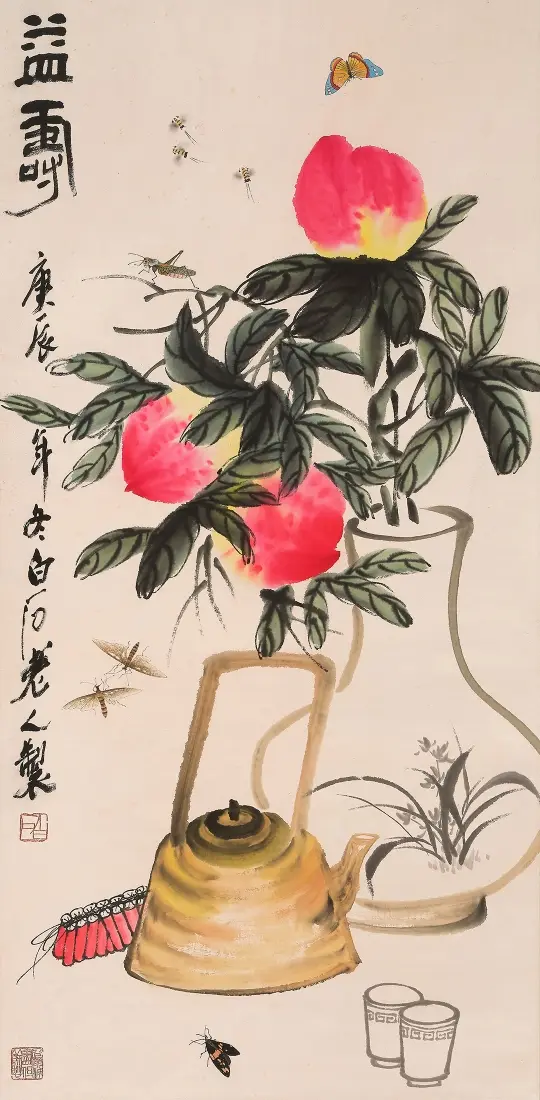 益壽
庚辰年冬白石老人製